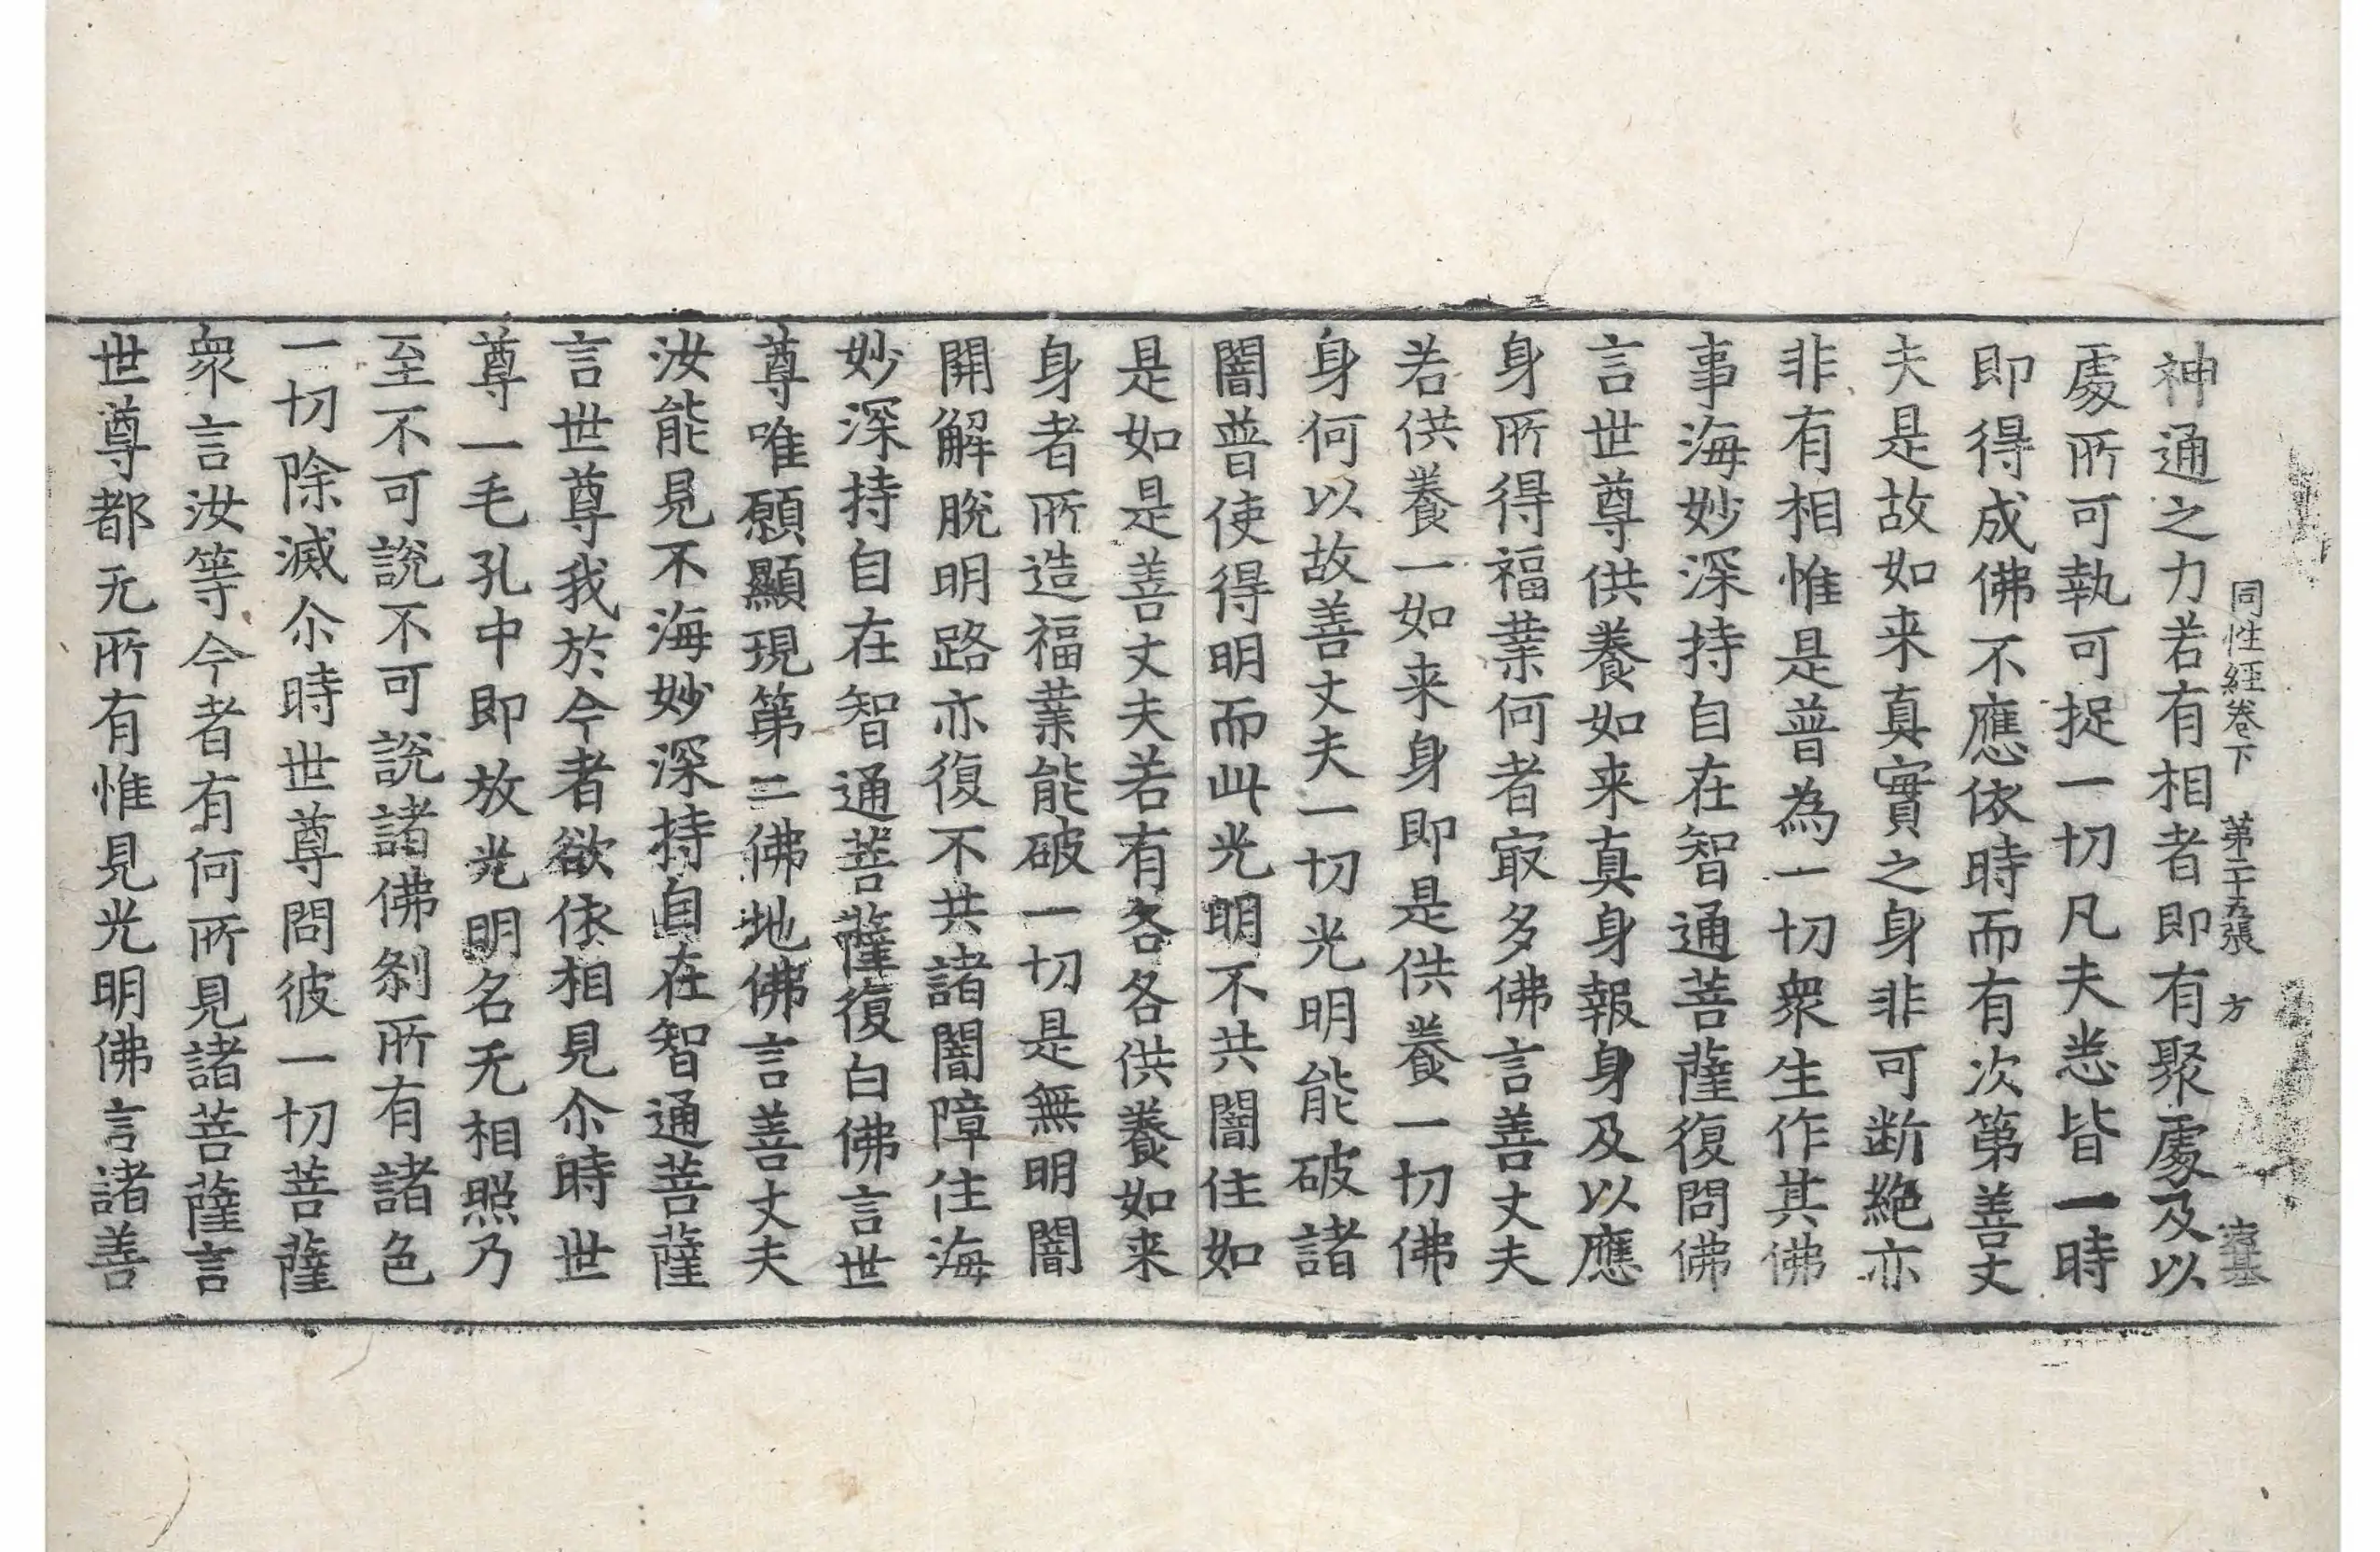 同性經卷下 第二十五張 方
神通之力若有相者即有聚處及以
處所可執可捉一切凡夫悉皆一時
即得成佛不應依時而有次第善丈
夫是故如来真實之身非可断絶亦
非有相惟是普為一切衆生作其佛
事海妙深持自在智通菩薩復問佛
言世尊供養如来真身報身及以應
身所得福業何者㝡多佛言善丈夫
若供養一如来身即是供養一切佛
身何以故善丈夫一切光明能破諸
闇普使得明而此光明不共闇住如
是如是善丈夫若有各各供養如来
身者所造福業能破一切是無明闇
開解脫明路亦復不共諸闇障住海
妙深持自在智通菩薩復白佛言世
尊唯願顯現第二佛地佛言善丈夫
汝能見不海妙深持自在智通菩薩
言世尊我於今者欲依相見尒時世
尊一毛孔中即放光明名无相照乃
至不可說不可說諸佛刹所有諸色
一切除滅尒時世尊問彼一切菩薩
衆言汝等今者有何所見諸菩薩言
世尊都无所有惟見光明佛言諸善